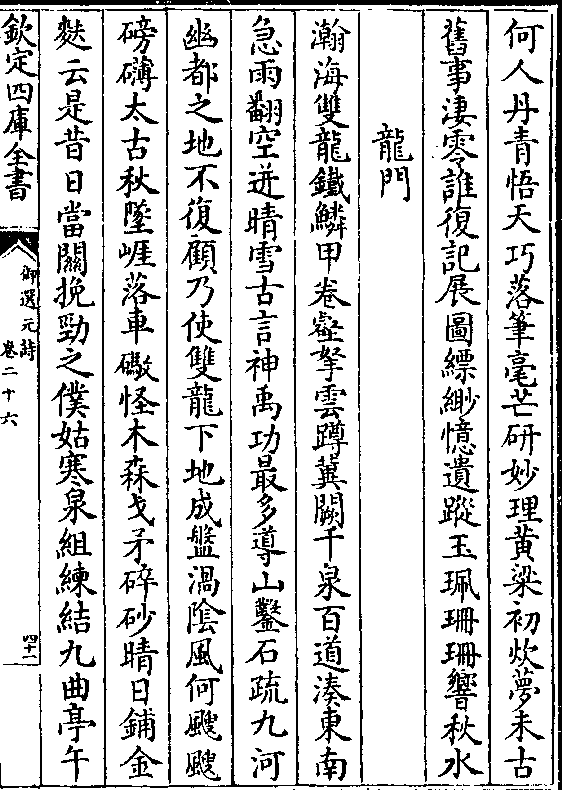 何人丹青悟天巧落筆毫芒研妙理黄粱初炊夢未古
舊事淒零誰復記展圖縹緲憶遺蹤玉珮珊珊響秋水
龍門
瀚海雙龍鐵鱗甲卷壑拏雲蹲冀闕千泉百道湊東南
急雨翻空迸晴雪古言神禹功最多導山鑿石疏九河
幽都之地不復顧乃使雙龍下地成盤渦陰風何颼颼
磅礴太古秋墜崖落車礮怪木森戈矛碎砂晴日鋪金
麩云是昔日當關挽勁之僕姑寒泉組練結九曲亭午
欽定四庫全書
御選元詩
卷二十六
四十一